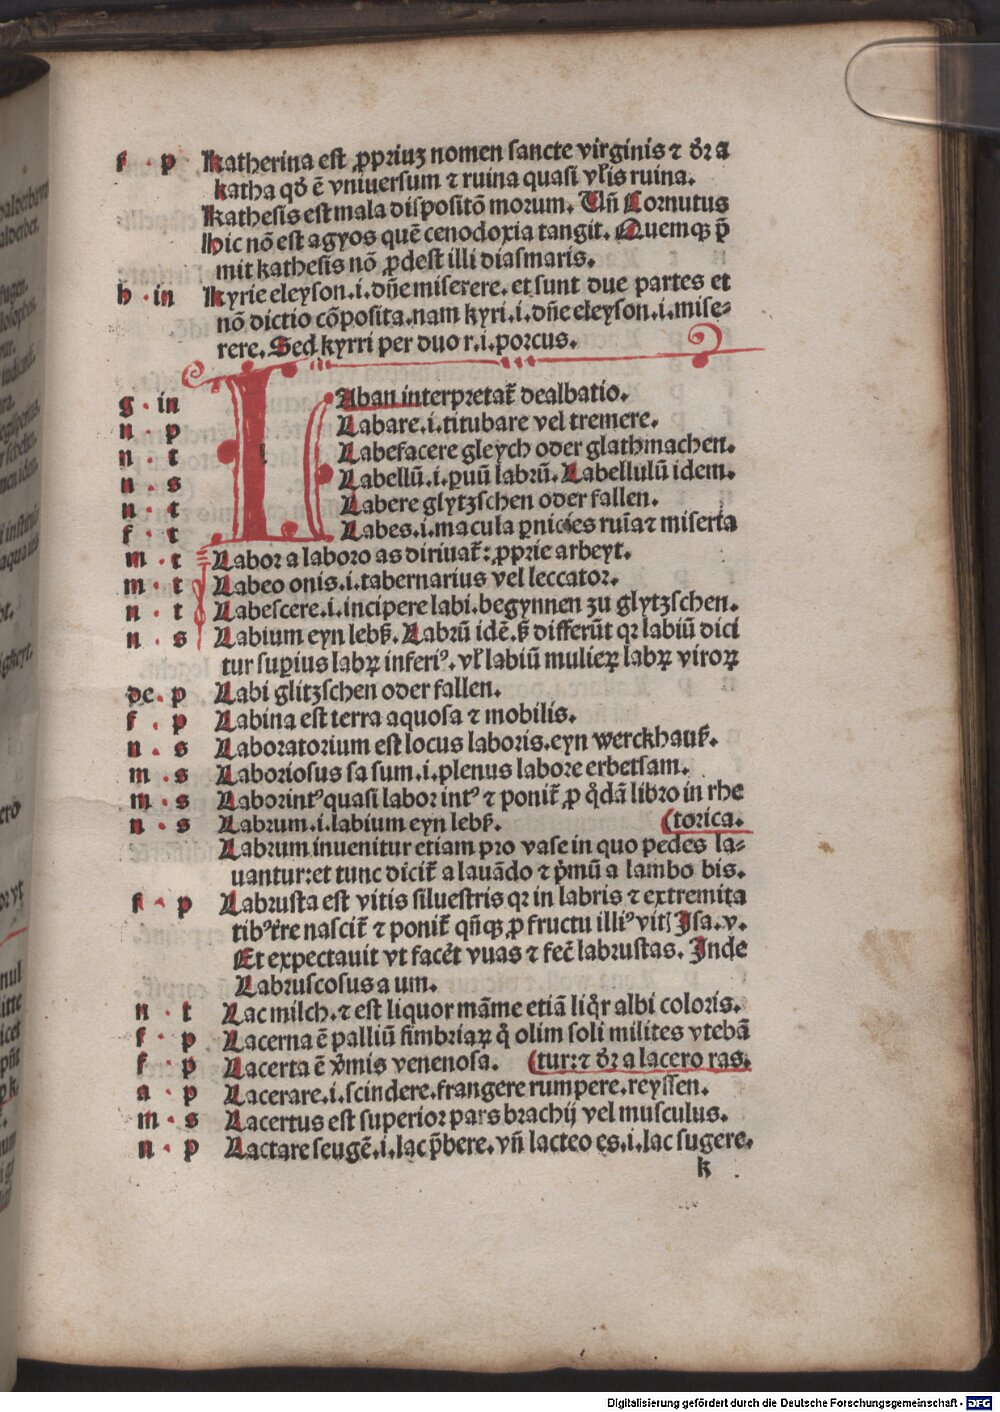 f · p Katherina est ꝓpriuꝫ nomen sancte virginis ⁊ dr̄ a
katha qd̓ ē vniuersum ⁊ ruina quasi vl̓is ruina.
Kathesis est mala dispositō morum. Vñ Cornutus
Hic nō est agyos quē cenodoxia tangit. Quemqꝫ p̄
mit kathesis nō ꝓdest illi diasmaris.
h · in Kyrie eleyson .i. dn̄e miserere. et sunt due partes et
nō dictio cōposita. nam kyri .i. dn̄e eleyson .i. mise⸗
rere. Sed kyrri per duo r .i. porcus.
g · in LAban interpretat̄ dealbatio.
n · p Labare .i. titubare vel tremere.
n · t Labefacere gleych oder glathmachen.
n · s Labellū .i. ꝑuū labrū. Labellulū idem.
n · t Labere glytzschen oder fallen.
f · t Labes .i. macula ꝑnicies ruīa ⁊ miseria
m · t Labor a laboro as diriuat̄: ꝓprie arbeyt.
m · t Labeo onis .i. tabernarius vel leccator.
n · t Labescere .i. incipere labi. begynnen zu glytzschen.
n · s Labium eyn lebß. Labrū idē. sꝫ differūt qꝛ labiū dici
tur suꝑius labꝝ inferiꝰ. vl̓ labiū mulieꝝ labꝝ viroꝝ
de. p Labi glitzschen oder fallen.
f · p Labina est terra aquosa ⁊ mobilis.
n · s Laboratorium est locus laboris. eyn werckhauß.
m · s Laboriosus sa sum .i. plenus labore erbetsam.
m · s Laborintꝰ quasi labor intꝰ ⁊ ponit̄ ꝓ qd̓ā libro in rhe
(torica.
n · s Labrum .i. labium eyn lebß.
Labrum inuenitur etiam pro vase in quo pedes la⸗
uantur: et tunc dicit̄ a lauādo ⁊ p̓mū a lambo bis.
f · p Labrusta est vitis siluestris qꝛ in labris ⁊ extremita
tibꝰ t̓re nascit̄ ⁊ ponit̄ qn̄qꝫ ꝓ fructu illiꝰ vitꝭ Isa. v.
Et expectauit vt facet̓ vuas ⁊ fec̄ labrustas. Inde
Labruscosus a um.
n · t Lac milch. ⁊ est liquor māme etiā liq̓r albi coloris.
f · p Lacerna ē palliū fimbriaꝝ q̓ olim soli milites vtebā
(tur: ⁊ dr̄ a lacero ras.
f · p Lacerta ē v̓mis venenosa.
a · p Lacerare .i. scindere. frangere rumpere. reyssen.
m · s Lacertus est superior pars brachij vel musculus.
n · p Lactare seugē .i. lac p̄bere. vñ lacteo es .i. lac sugere.
k
Digitalisierung gefördert durch die Deutsche Forschungsgemeinschaft - DFG